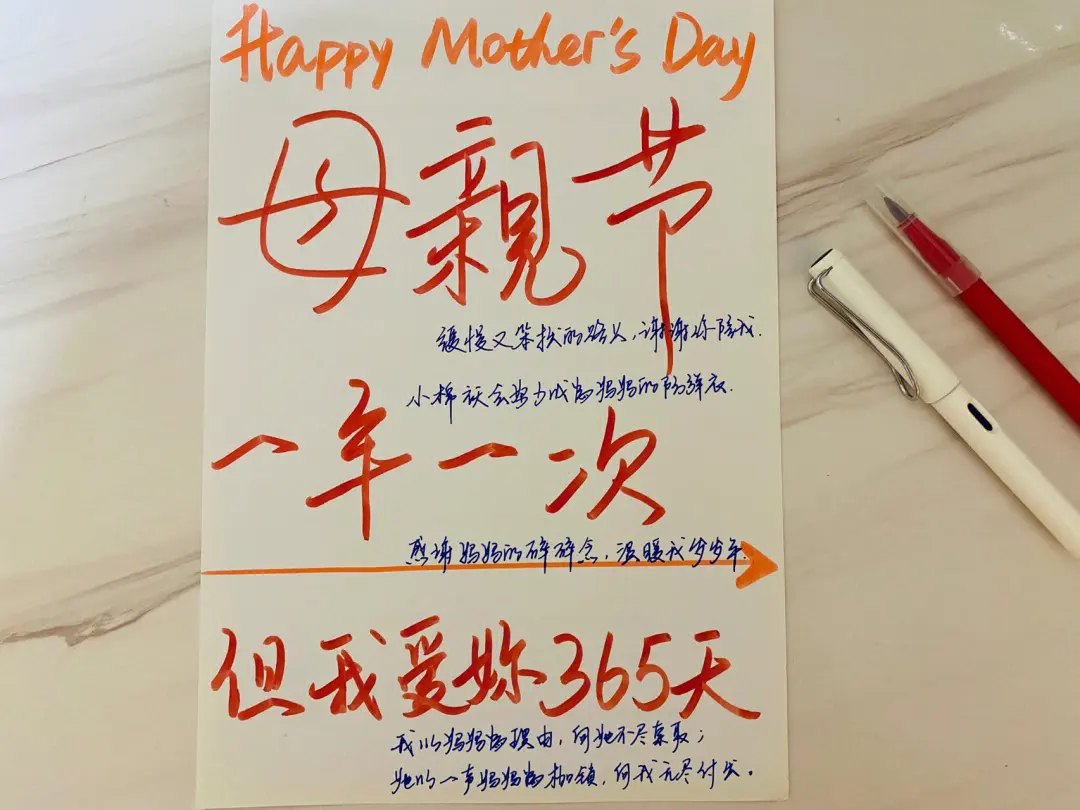 Happy Mother's Day
母親节
缓慢又笨拙的路上,谢谢你陪我.
小棉袄会努力成为妈妈的防弹衣.
一年一次
感谢妈妈的碎碎念,温暖我岁岁年.
但我爱妳365天
我以妈妈为理由,向她不尽索取;
她以一声妈妈为枷锁,向我无尽付出.